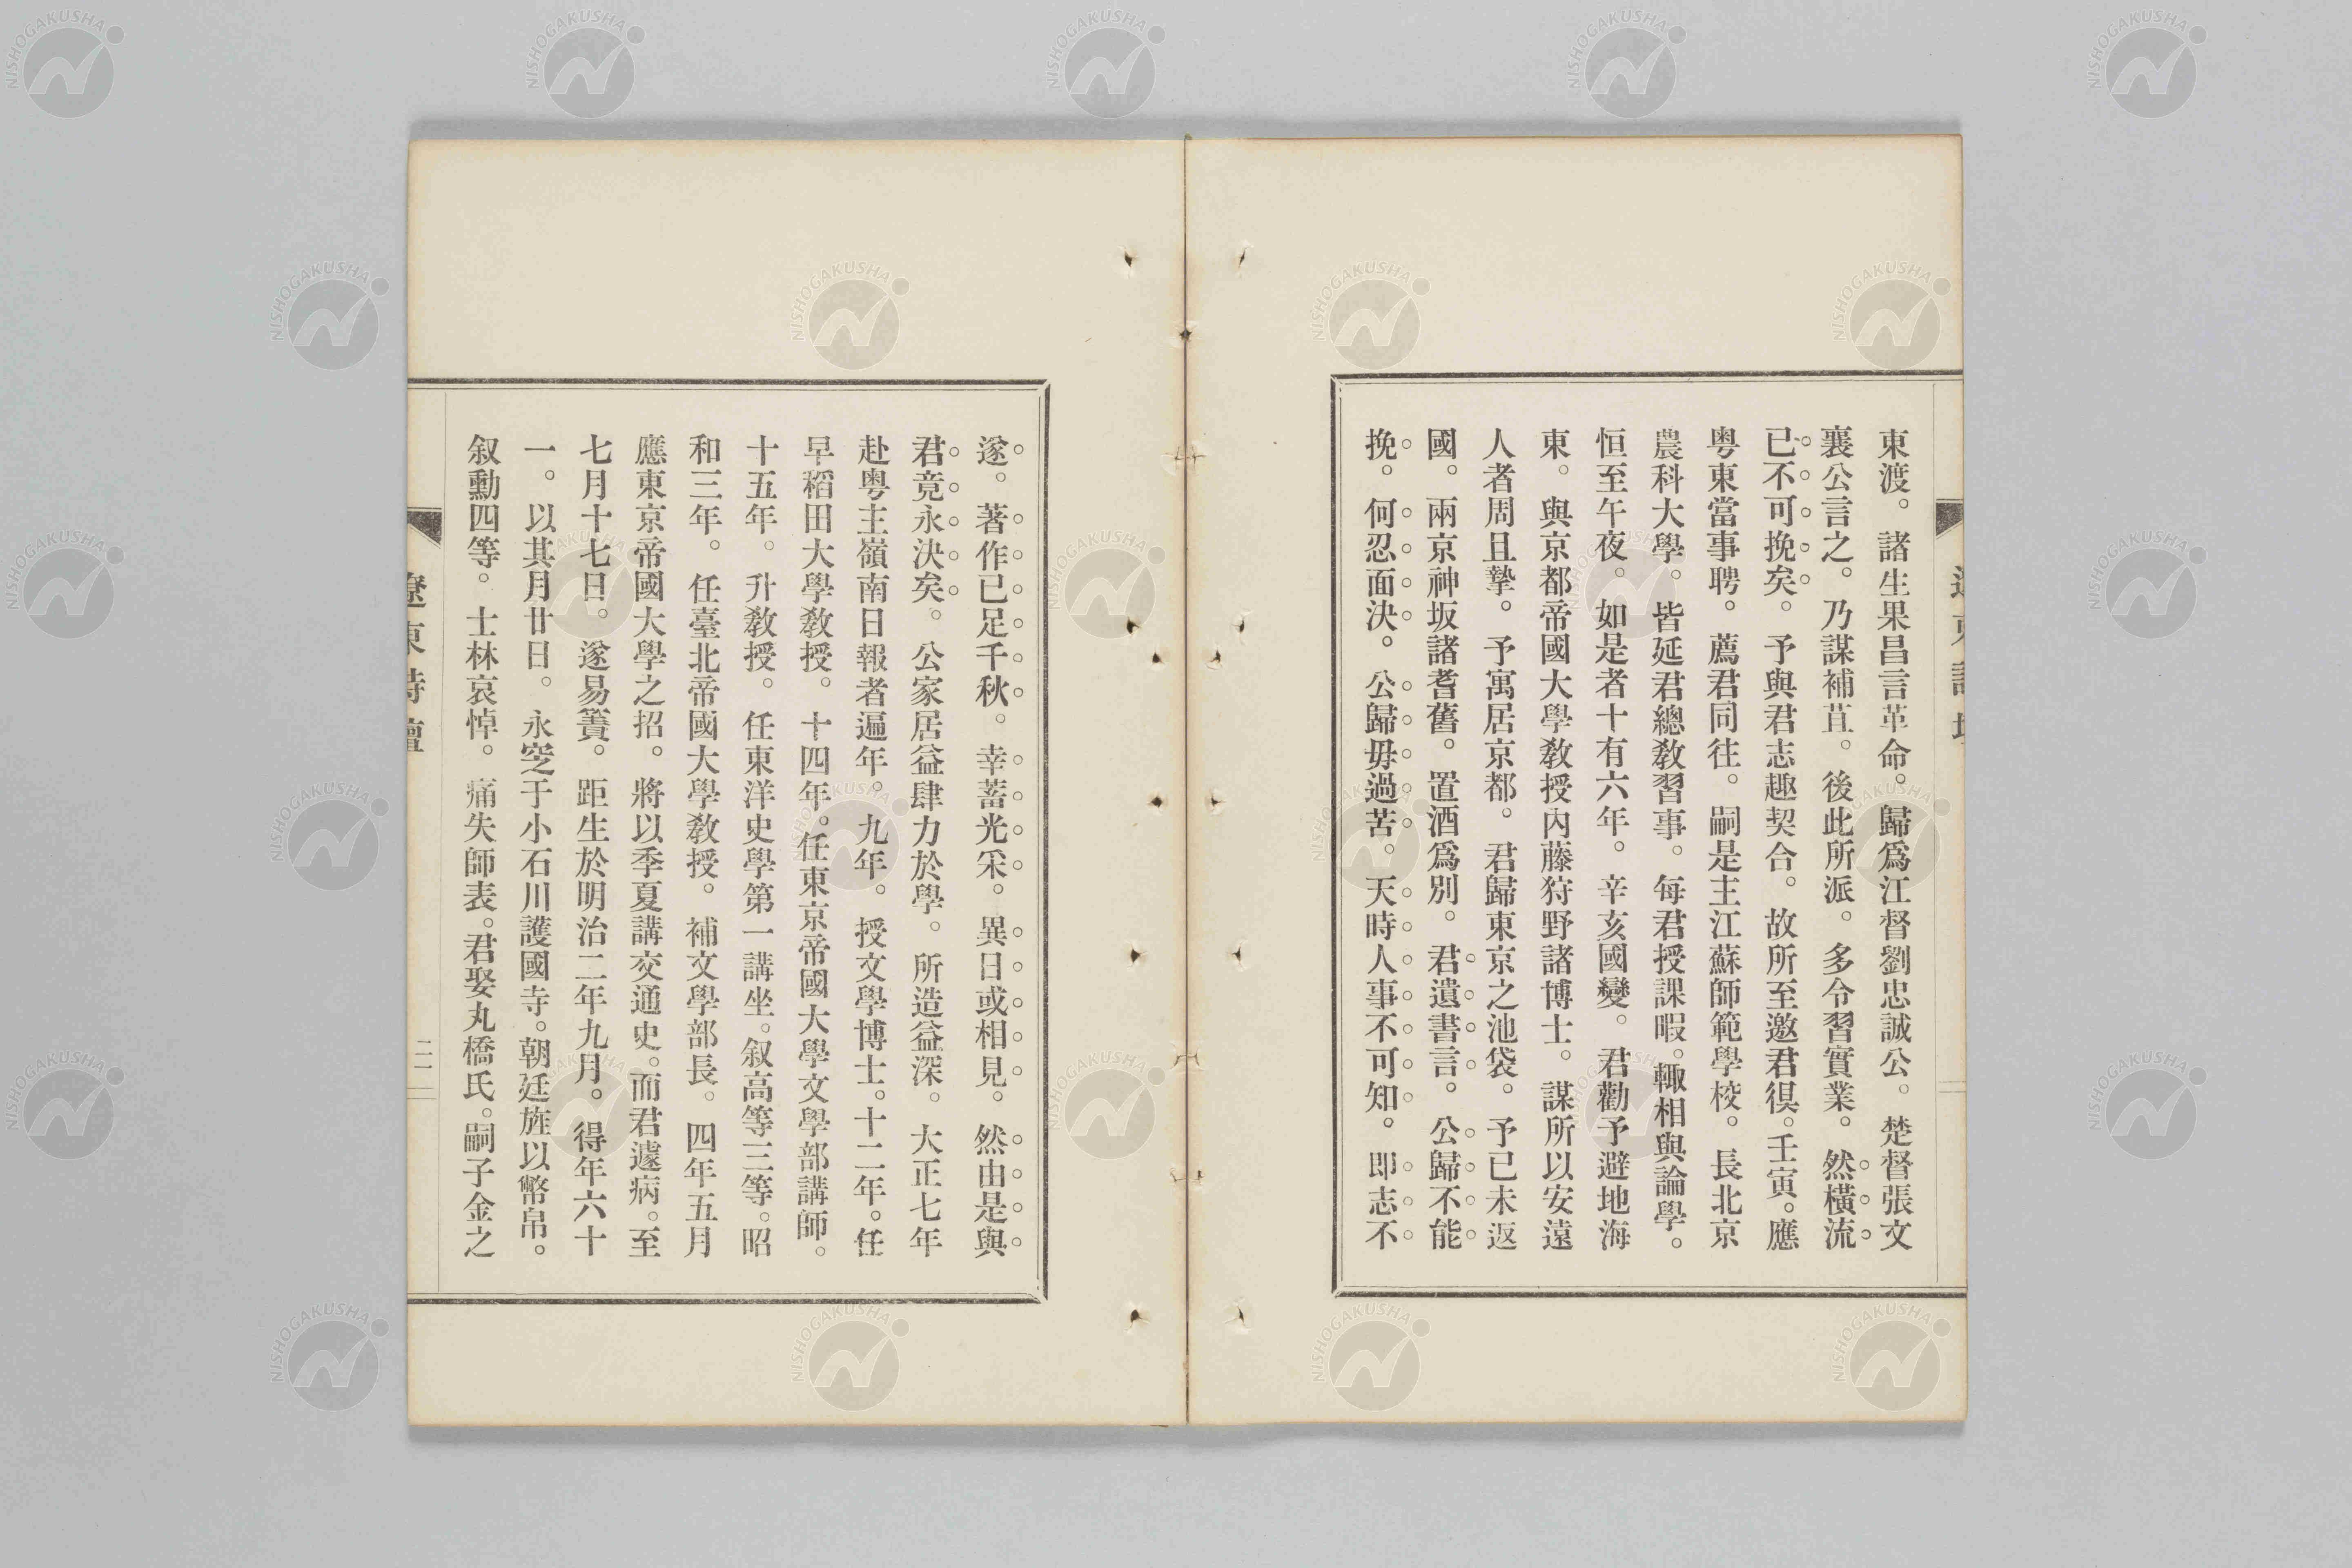 東渡。諸生果昌言革命。歸爲江督劉忠誠公。楚督張文
襄公言之。乃謀補苴。後此所派。多令習實業。然橫流
已不可挽矣。予與君志趣契合。故所至邀君俱。壬寅。應
粵東當事聘。薦君同往。嗣是主江蘇師範學校。長北京
農科大學。皆延君總敎習事。每君授課暇。輙相與論學。
恒至午夜。如是者十有六年。辛亥國變。君勸予避地海
東。與京都帝國大學敎授內藤狩野諸博士。謀所以安遠
人者周且摯。予寓居京都。君歸東京之池袋。予已未返
國。兩京神坂諸耆舊。置酒爲別。君遺書言。公歸不能
挽。何忍面決。公歸毋過苦。天時人事不可知。即志不
遂。著作已足千秋。幸蓄光采。異日或相見。然由是與
君竟永決矣。公家居益肆力於學。所造益深。大正七年
赴粵主嶺南日報者遍年。九年。授文學博士。十二年。任
早稻田大學敎授。十四年。任東京帝國大學文學部講師。
十五年。升敎授。任東洋史學第一講坐。叙高等三等。昭
和三年。任臺北帝國大學敎授。補文學部長。四年五月
應東京帝國大學之招。將以季夏講交通史。而君遽病。至
七月十七日。遂易簀。距生於明治二年九月。得年六十
一。以其月廿日。永窆于小石川護國寺。朝廷旌以幣帛。
叙勳四等。士林哀悼。痛失師表。君娶丸橋氏。嗣子金之
遼東詩壇
二一
NISHOGAKUSHA